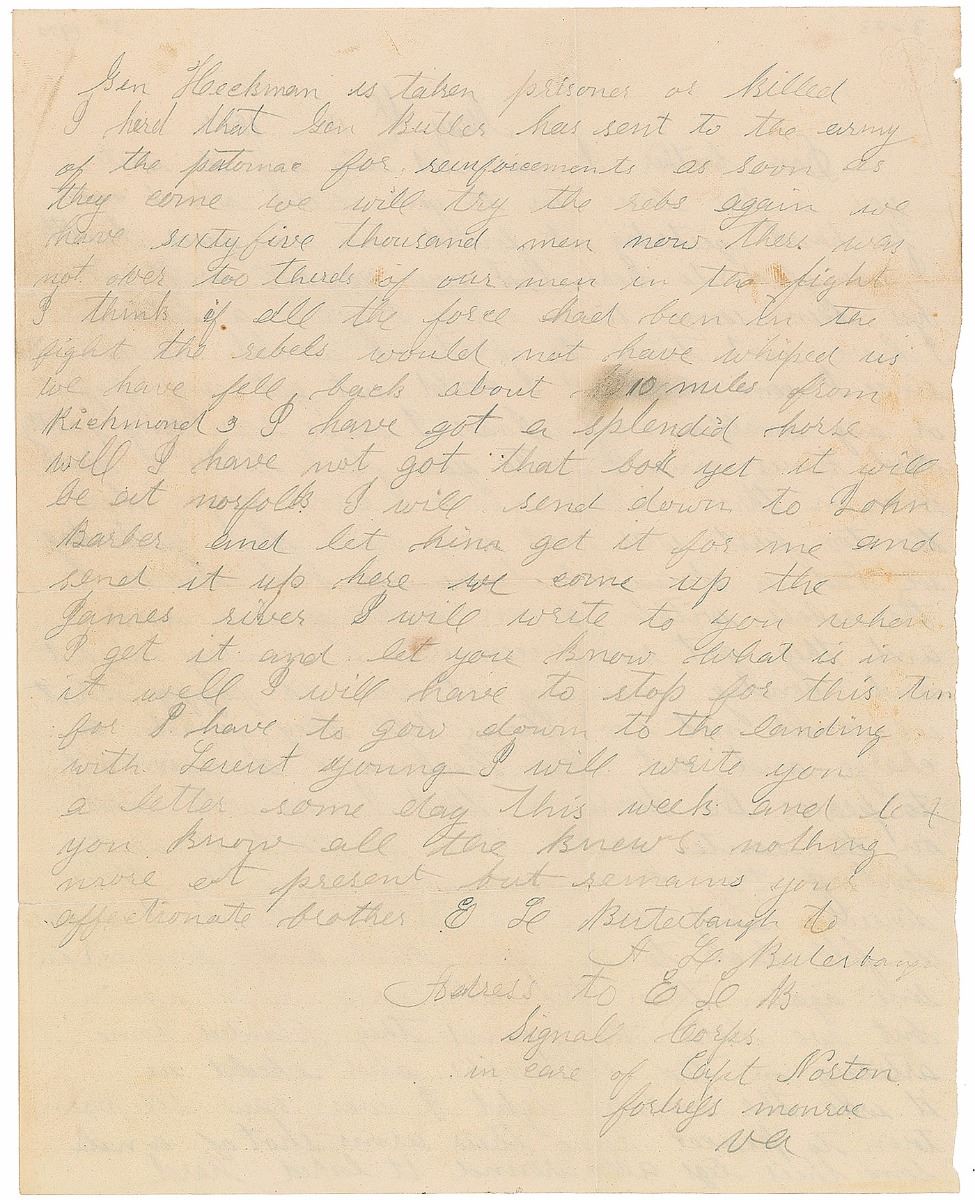 Gen Heckman is taken prisoner or killed
I herd that Gen Butler has sent to the army
of the patomac for reinforcements as soon as
they come we will try the rebs again we
have sixtyfive thousand men now there was
not over too therds of our men in the fight
I think if all the force had been in the
fight the rebels would not have whiped us
we have fell back about 10 miles from
Richmond I have got a splendid horse
well I have not got that box yet it will
be at norfolk I will send down to John
Barber and let him get it for me and
send it up here we come up the
James river I will write to you when
I get it and let you know what is in
it well I will have to stop for this tim
for I have to gow down to the landing
with Leient young I will write you
a letter some day this week and let
you know all the knews nothing
more at present but remains your
affectionate brother E L Buterbaugh to
A L. Buterbaugh
Adress to E L B
Signal Corps
in care of Capt Norton
fortress monroe
va